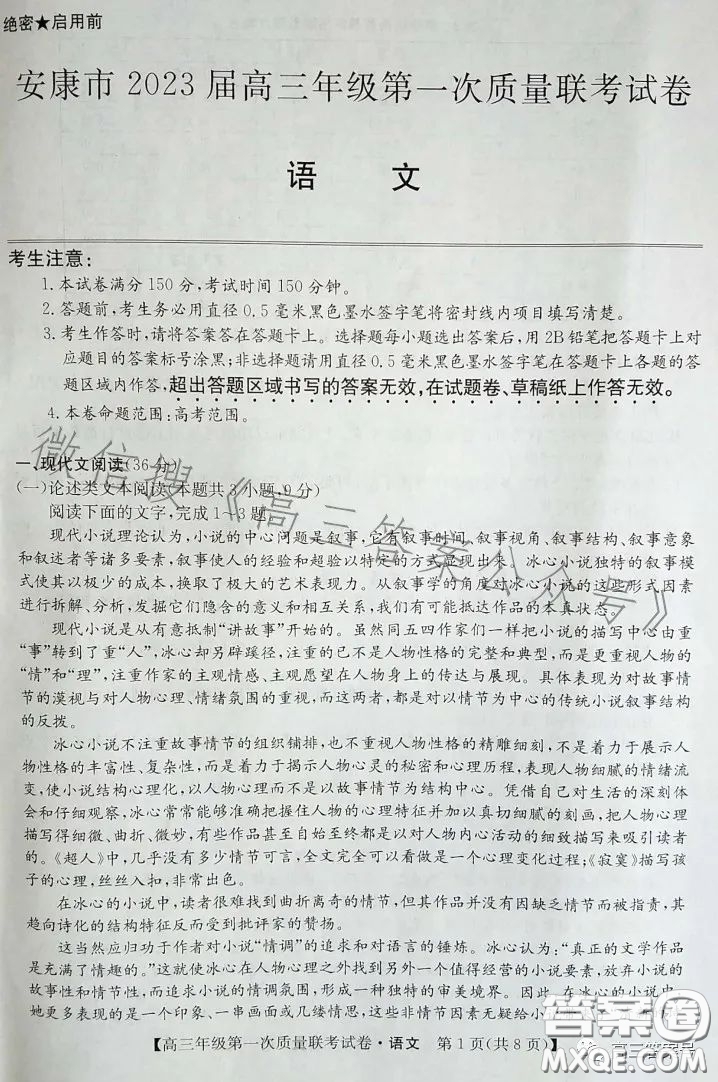 绝密★启用前
安康市2023届高三年级第一次质量联考试卷
语 文
考生注意：
1.本试卷满分150分,考试时间150分钟。
2.答题前,考生务必用直径0.5毫米黑色墨水签字笔将密封线内项目填写清楚。
3.考生作答时,请将答案答在答题卡上。选择题每小题选出答案后,用2B铅笔把答题卡上对
应题目的答案标号涂黑;非选择题请用直径0.5毫米黑色墨水签字笔在答题卡上各题的答
题区域内作答,超出答题区域书写的答案无效,在试题卷、草稿纸上作答无效。
4.本卷命题范围:高考范围。
一、现代文阅读(36分)
(一)论述类文本阅读(本题共3小题,9分)
阅读下面的文字,完成1~3题。
现代小说理论认为,小说的中心问题是叙事,它有叙事时间、叙事视角、叙事结构、叙事意象
和叙述者等诸多要素,叙事使人的经验和超验以特定的方式显现出来。冰心小说独特的叙事模
式使其以极少的成本,换取了极大的艺术表现力。从叙事学的角度对冰心小说的这些形式因素
进行拆解、分析,发掘它们隐含的意义和相互关系,我们有可能抵达作品的本真状态。
现代小说是从有意抵制“讲故事”开始的。虽然同五四作家们一样把小说的描写中心由重
“事”转到了重“人”,冰心却另辟蹊径,注重的已不是人物性格的完整和典型,而是更重视人物的
“情”和“理”,注重作家的主观情感、主观愿望在人物身上的传达与展现。具体表现为对故事情
节的漠视与对人物心理、情绪氛围的重视,而这两者,都是对以情节为中心的传统小说叙事结构
的反拨。
冰心小说不注重故事情节的组织铺排,也不重视人物性格的精雕细刻,不是着力于展示人
物性格的丰富性、复杂性,而是着力于揭示人物心灵的秘密和心理历程,表现人物细腻的情绪流
变,使小说结构心理化,以人物心理而不是以故事情节为结构中心。凭借自己对生活的深刻体
会和仔细观察,冰心常常能够准确把握住人物的心理特征并加以真切细腻的刻画,把人物心理
描写得细微、曲折、微妙,有些作品甚至自始至终都是以对人物内心活动的细致描写来吸引读者
的。《超人》中,几乎没有多少情节可言,全文完全可以看做是一个心理变化过程;《寂寞》描写孩
子的心理,丝丝入扣,非常出色。
在冰心的小说中,读者很难找到曲折离奇的情节,但其作品并没有因缺乏情节而被指责,其
趋向诗化的结构特征反而受到批评家的赞扬。
这当然应归功于作者对小说“情调”的追求和对语言的锤炼。冰心认为:“真正的文学作品
是充满了情趣的。”这就使冰心在人物心理之外找到另一个值得经营的小说要素,放弃小说的
故事性和情节性,而追求小说的情调氛围,形成一种独特的审美境界。因此,在冰心的小说中,
她更多表现的是一个印象、一串画面或几缕情思,这些非情节因素无疑给小说
【高三年级第一次质量联考试卷·语文 第1页(共8页)】
微信搜《高三答案公众号》
答案圈
MXQE.COM
高三答案号